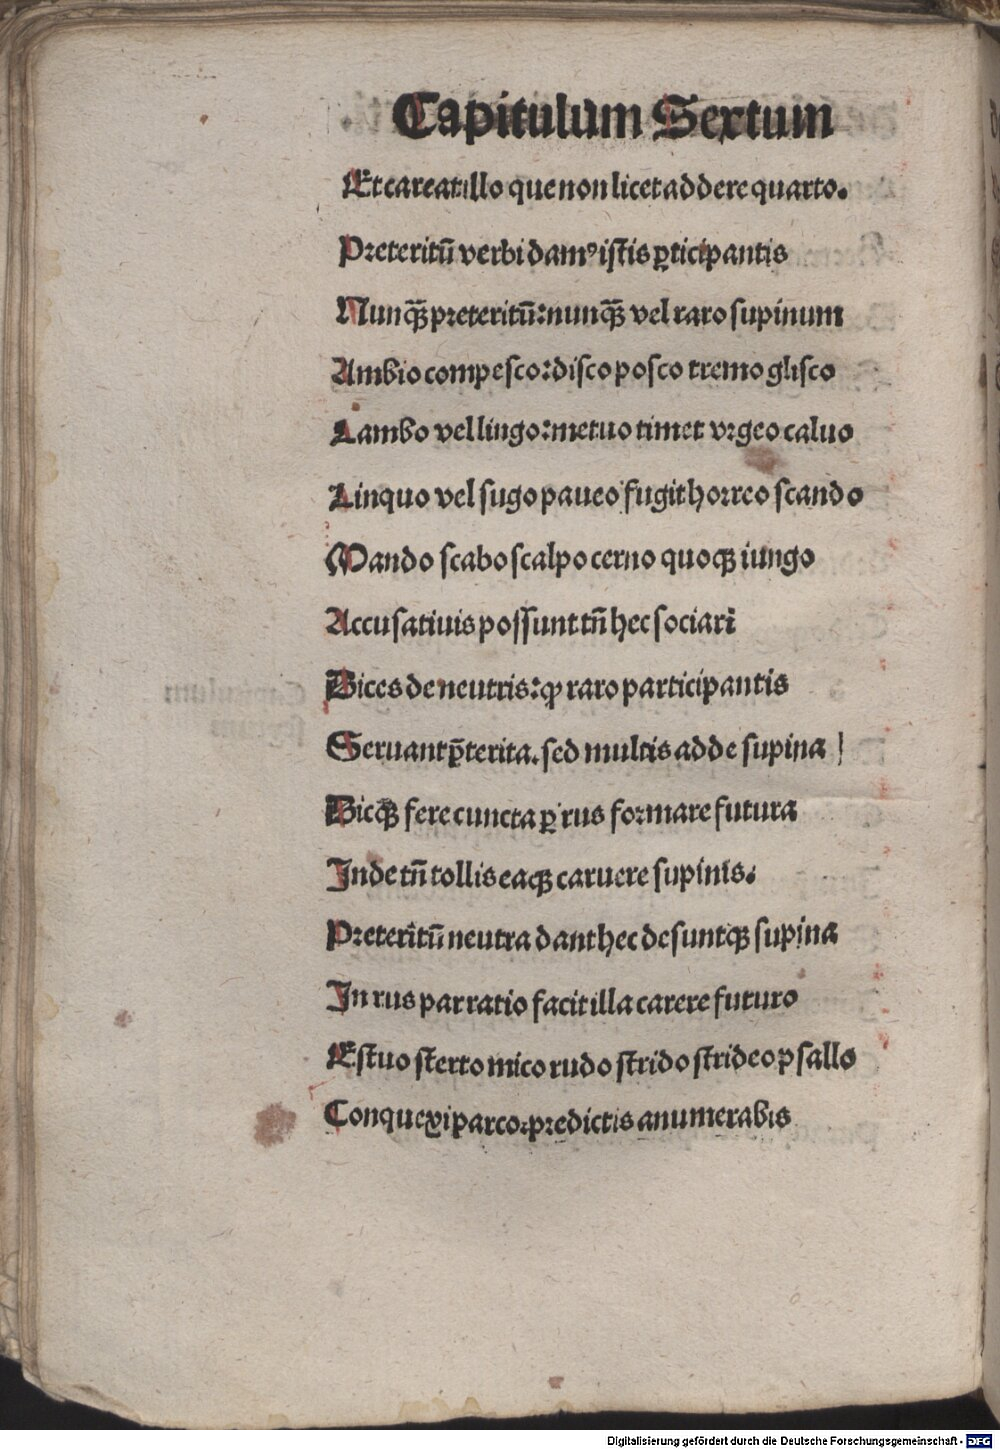 Capitulum Sextum
Et careat illo que non licet addere quarto.
Preteritū verbi damꝰ istis ꝑticipantis
Nunqȝ̄ preteritū: nunqȝ̄ vel raro supinum
Ambio compesco: disco posco tremo glisco
Lambo vel lingo: metuo timet vrgeo caluo
Linquo vel sugo paueo fugit horreo scando
Mando scabo scalpo cerno quoqȝ iungo
Accusatiuis possunt tn̄ hec sociari
Dices de neutris: ꝙ raro participantis
Seruant p̄terita. sed multis adde supina
Dicqȝ fere cuncta ꝑ rus formare futura
Inde tn̄ tollis eaqȝ caruere supinis.
Preteritū neutra dant hec desuntqȝ supina
In rus par ratio facit illa carere futuro
Estuo sterto mico rudo strido strideo psallo
Conquexi parco. predictis anumerabis
Digitalisierung gefördert durch die Deutsche Forschungsgemeinschaft - DFG